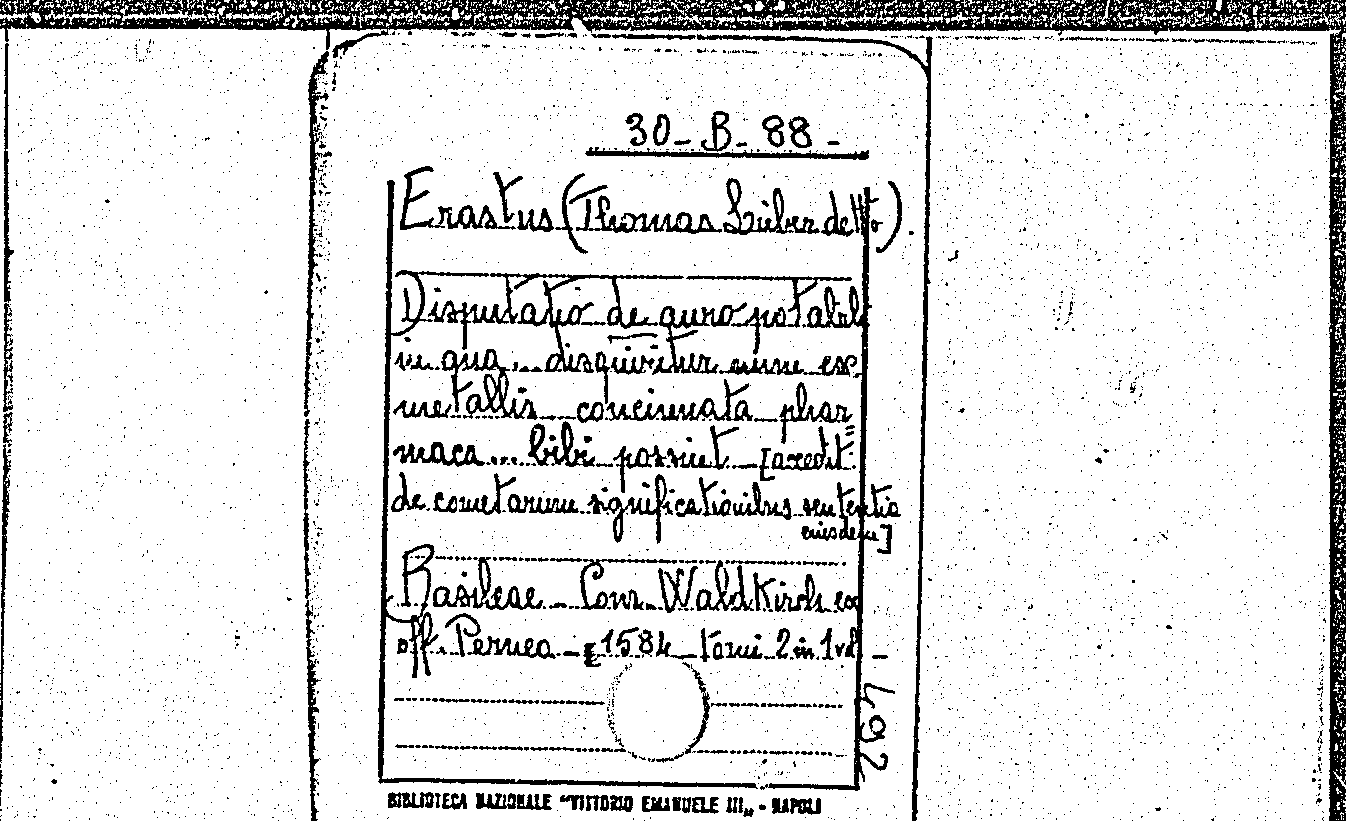 30 - B - 88 -
Erastus (Thomas Lieber detto).
Disputatio de auro potabili
in qua... disquiritur num ex
metallis concinnata phar=
maca... bibi possint - [accedit:
de cometarum significationibus sententia
eiusdem]
Basileae - Conr. Waldkirch ex
off. Pernea - 1584 - tomi 2 in 1 vol -
492
BIBLIOTECA NAZIONALE "VITTORIO EMANUELE III„ - NAPOLI